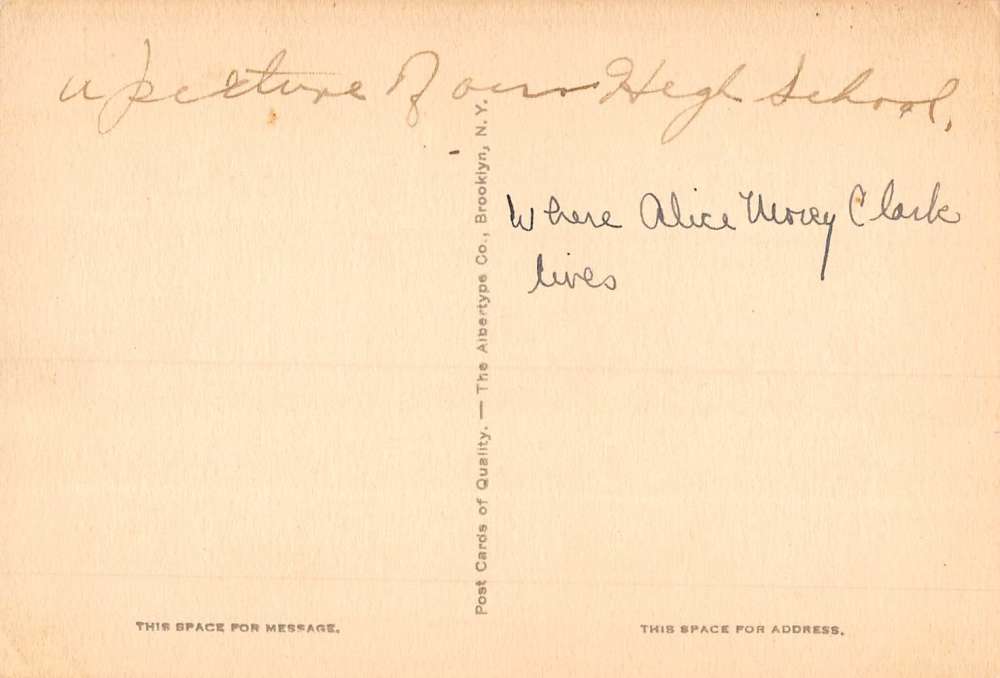 a picture of our High School.
Where Alice Morey Clark
lives
Post Cards of Quality. — The Albertype Co., Brooklyn, N. Y.
THIS SPACE FOR MESSAGE.
THIS SPACE FOR ADDRESS.